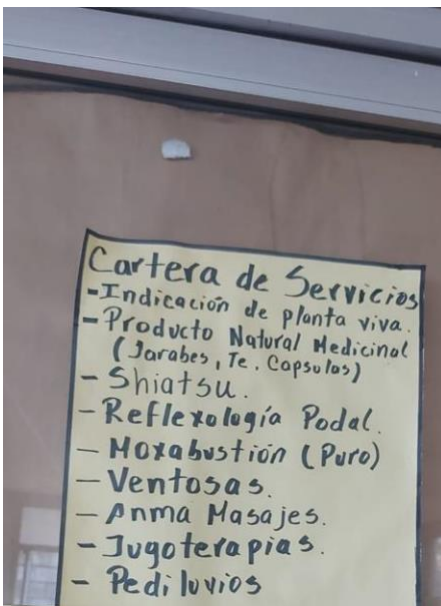 Cartera de Servicios
-Indicación de planta viva.
-Producto Natural Medicinal
(Jarabes, Te. Capsulas)
- Shiatsu.
- Reflexología Podal.
- Moxabustión (Puro)
- Ventosas.
- Anma Masajes.
- Jugoterapias.
- Pediluvios